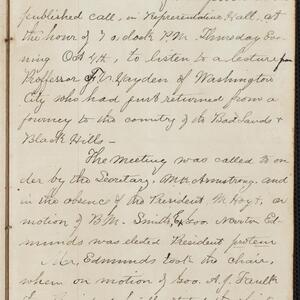 published call, in Representative Hall, at
the hour of 7 o,clock P.M. Thursday Eve
ning Oct 4th, to listen to a lecture from
Professor F. V. Hayden of Washington
City who had just returned from a
journey to the country of the Bad Lands &
Black Hills -
The Meeting was called to or
der by the Secretary, Mr Armstrong, and
in the absence of the President M. Hoyt, on
motion of B. M. Smith, Ex Gov. Newton Ed-
munds was elected President protem
Mr, Edmunds took the chair,
when on motion of Gov. A. J. Faulk